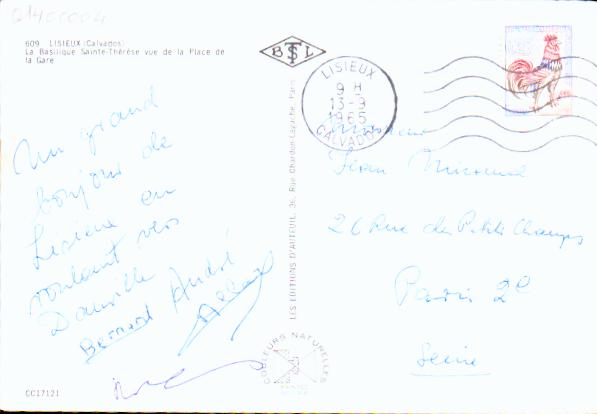 609 LISIEUX (Calvados)
La Basilique Sainte-Thérèse vue de la Place de
la Gare
BTSL
LISIEUX
9 H
13-9
1965
CALVADOS
Un grand
bonjour de
Lisieux en
roulant vers
Deauville
Bernard André
Monsieur
Jean
26 Rue des Petits Champs
Paris 2e
Seine
LES EDITIONS D'AUTEUIL, 36, Rue Chardon-Lagache, Paris
COULEURS NATURELLES
CC17121